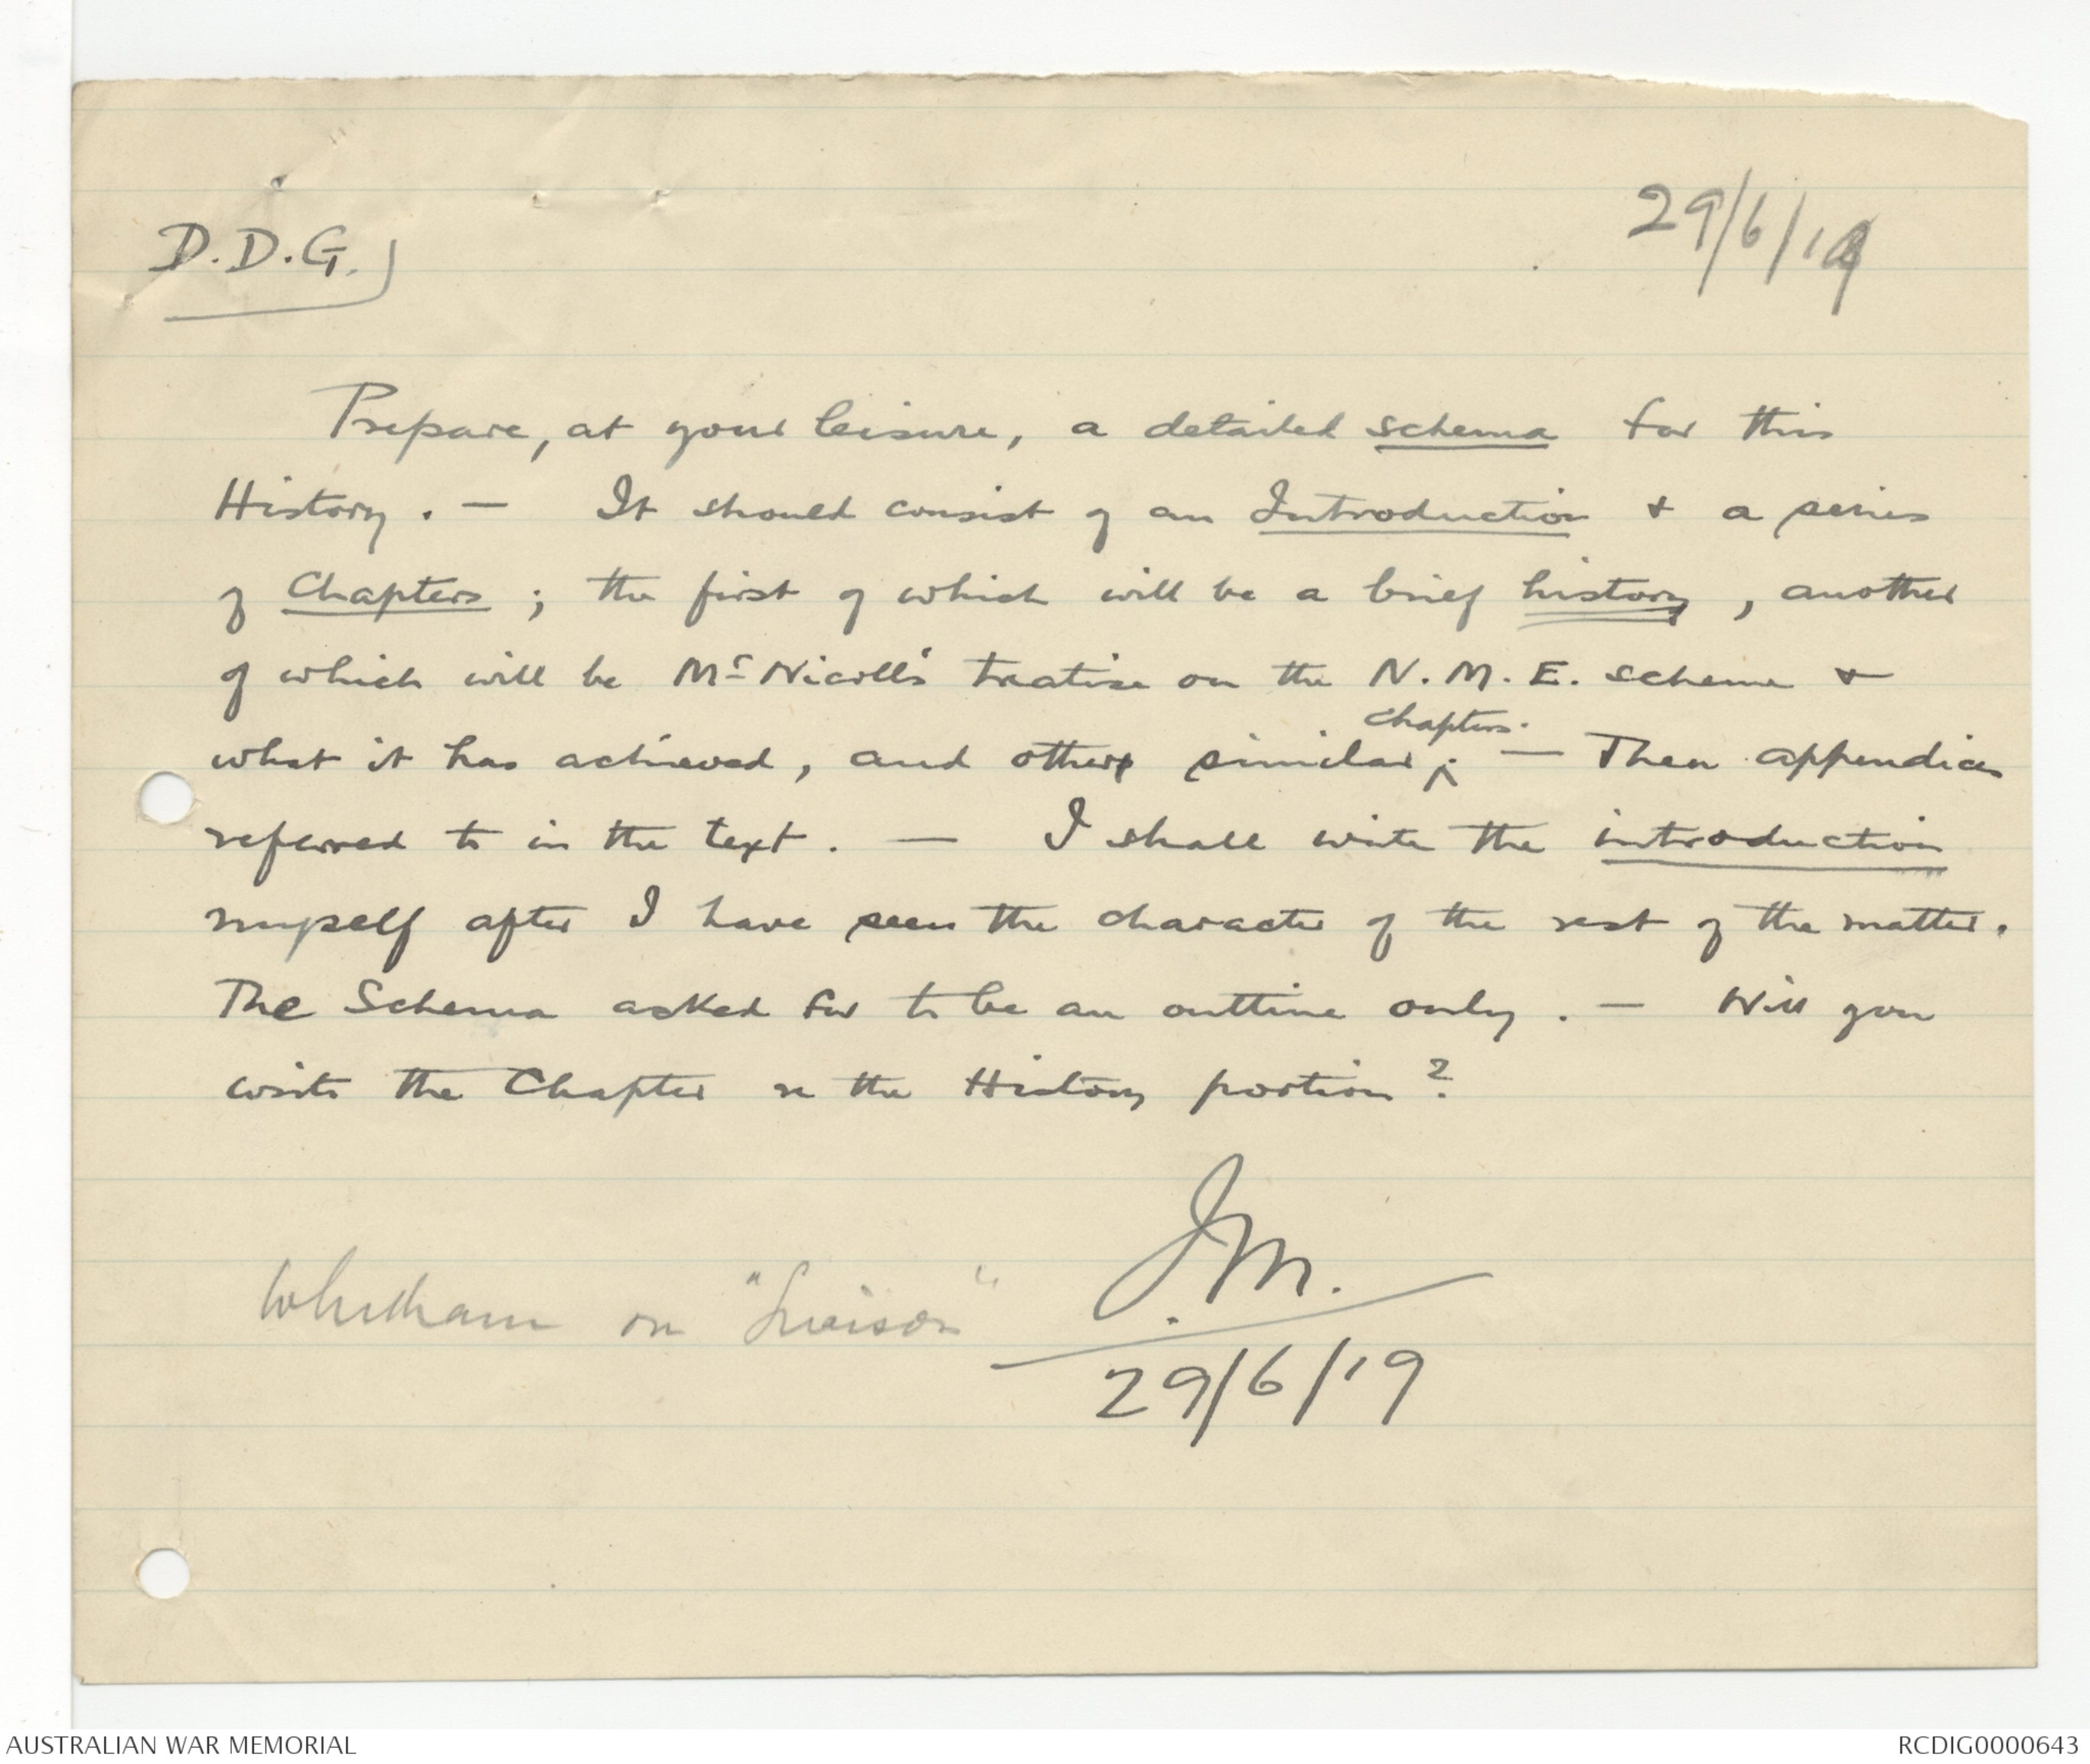 D.D.G.
29/6/19
Prepare, at your leisure, a detailed schema for this
History. — It should consist of an Introduction & a series
of Chapters; the first of which will be a brief history, another
of which will be McNicoll's treatise on the N.M.E. scheme &
chapters.
what it has achieved, and other similar; — Then appendices
referred to in the text. — I shall write the introduction
myself after I have seen the character of the rest of the matter.
The Schema asked for to be an outline only. — Will you
write the Chapter re the History portion?
J.M.
Whitham on "Liaison"
29/6/19
AUSTRALIAN WAR MEMORIAL
RCDIG0000643